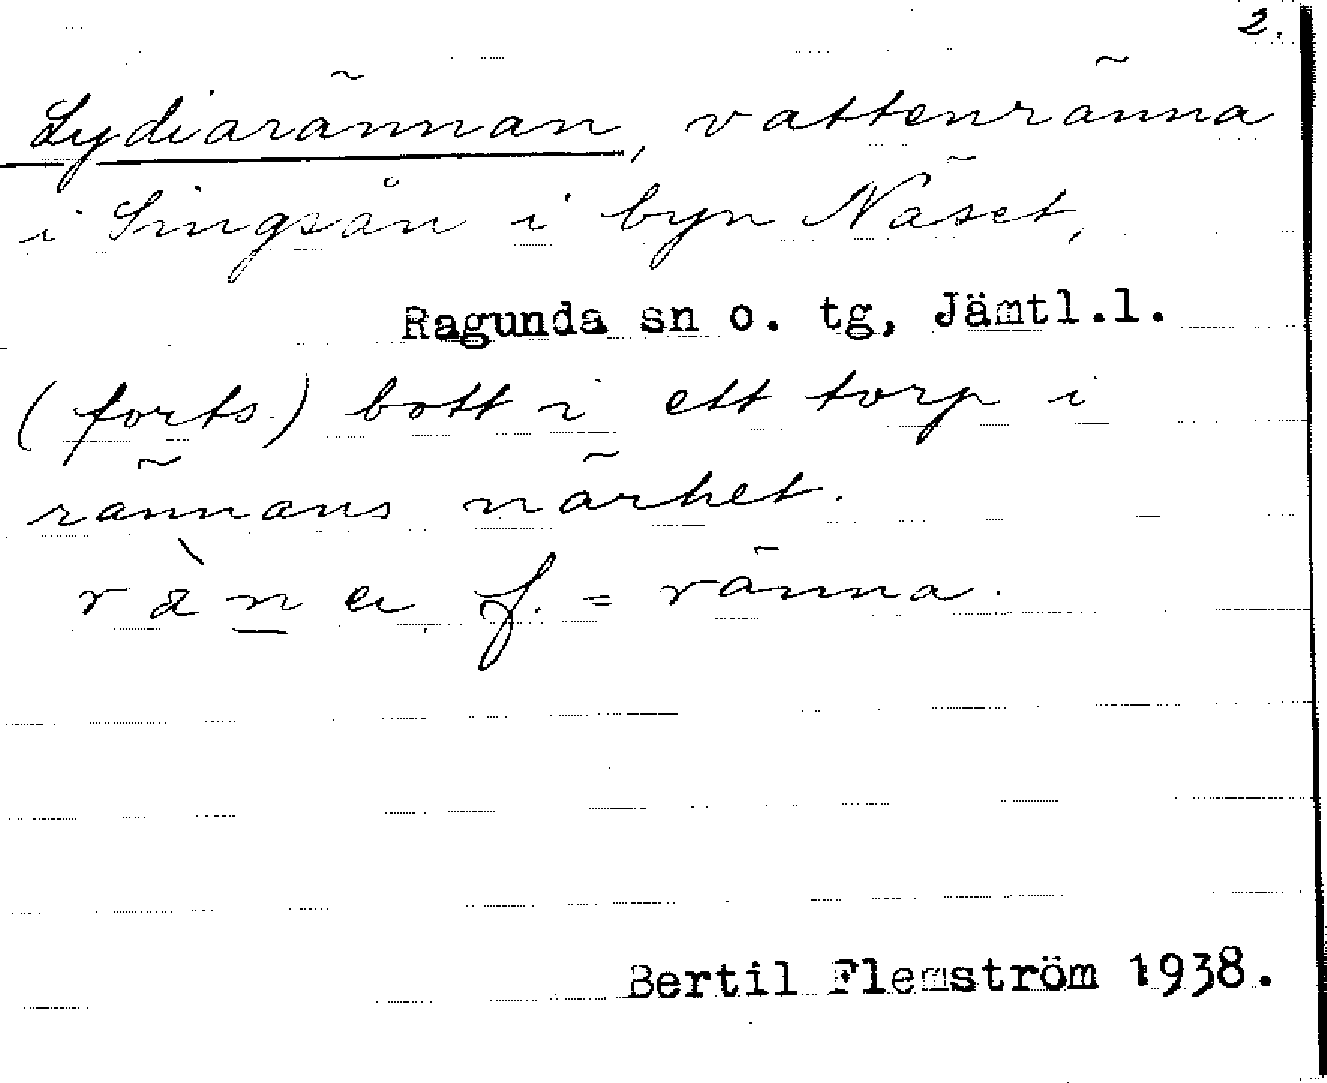 2.
Lydiarännan, vattenränna
i Singsån i byn Näset,
Ragunda sn o. tg, Jämtl.l.
(forts.) bott i ett torp i
rännans närhet.
f. = ränna.
Bertil Flemström 1938.